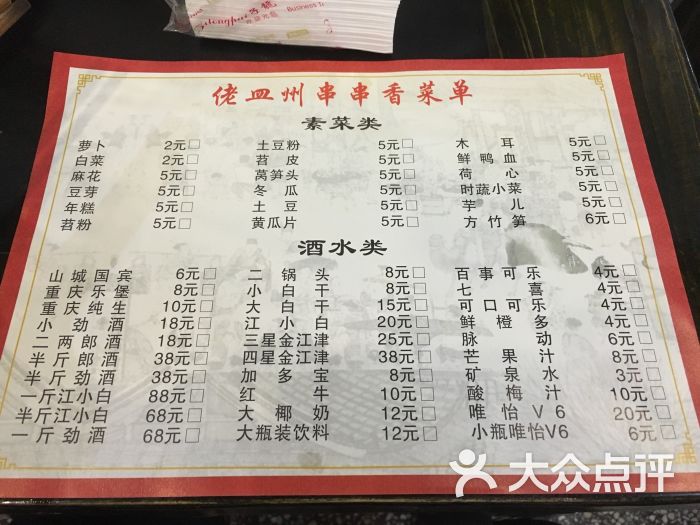 Business
佬皿州串串香菜单
素菜类
萝卜 2元□ 土豆粉 5元□ 木耳 5元□
白菜 2元□ 苕皮 5元□ 鲜鸭血 5元□
麻花 5元□ 莴笋头 5元□ 荷心 5元□
豆芽 5元□ 冬瓜 5元□ 时蔬小菜 5元□
年糕 5元□ 土豆 5元□ 芋儿 5元□
苕粉 5元□ 黄瓜片 5元□ 方竹笋 6元□
酒水类
山城国宾 6元□ 二锅头 8元□ 百事可乐 4元□
重庆乐堡 8元□ 小白干 8元□ 七喜 4元□
重庆纯生 10元□ 大白干 15元□ 可口可乐 4元□
小劲酒 18元□ 江小白 20元□ 鲜橙多 4元□
二两郎酒 18元□ 三星金江津 25元□ 脉动 6元□
半斤郎酒 38元□ 四星金江津 38元□ 芒果汁 8元□
半斤劲酒 38元□ 加多宝 8元□ 矿泉水 3元□
一斤江小白 88元□ 红牛 10元□ 酸梅汁 10元□
半斤江小白 68元□ 大椰奶 12元□ 唯怡V6 20元□
一斤劲酒 68元□ 大瓶装饮料 12元□ 小瓶唯怡V6 6元□
大众点评